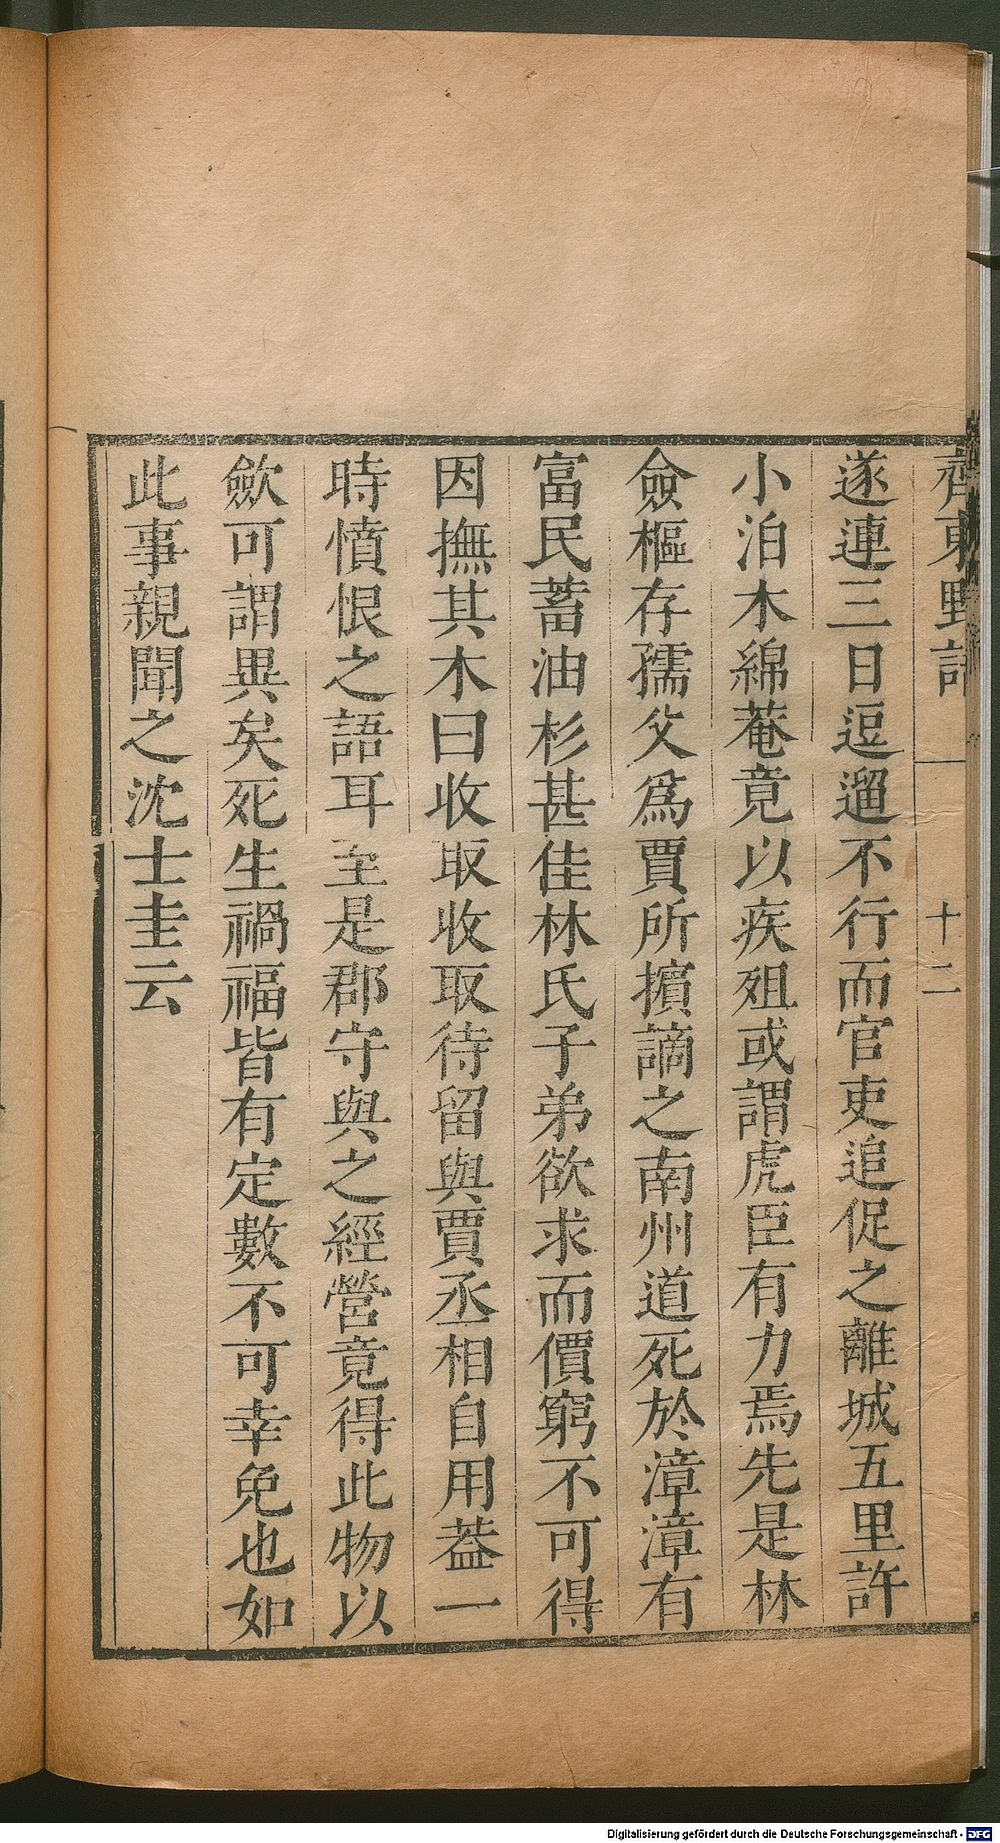 齊東野語
十二
遂連三日逗遛不行而官吏追促之離城五里許
小泊木綿菴竟以疾殂或謂虎臣有力焉先是林
僉樞存孺父爲賈所擯謫之南州道死於漳漳有
富民蓄油杉甚佳林氏子弟欲求而價窮不可得
因撫其木曰收取收取待留與賈丞相自用葢一
時憤恨之語耳至是郡守與之經營竟得此物以
歛可謂異矣死生禍福皆有定數不可幸免也如
此事親聞之沈士圭云
Digitalisierung gefördert durch die Deutsche Forschungsgemeinschaft - DFG